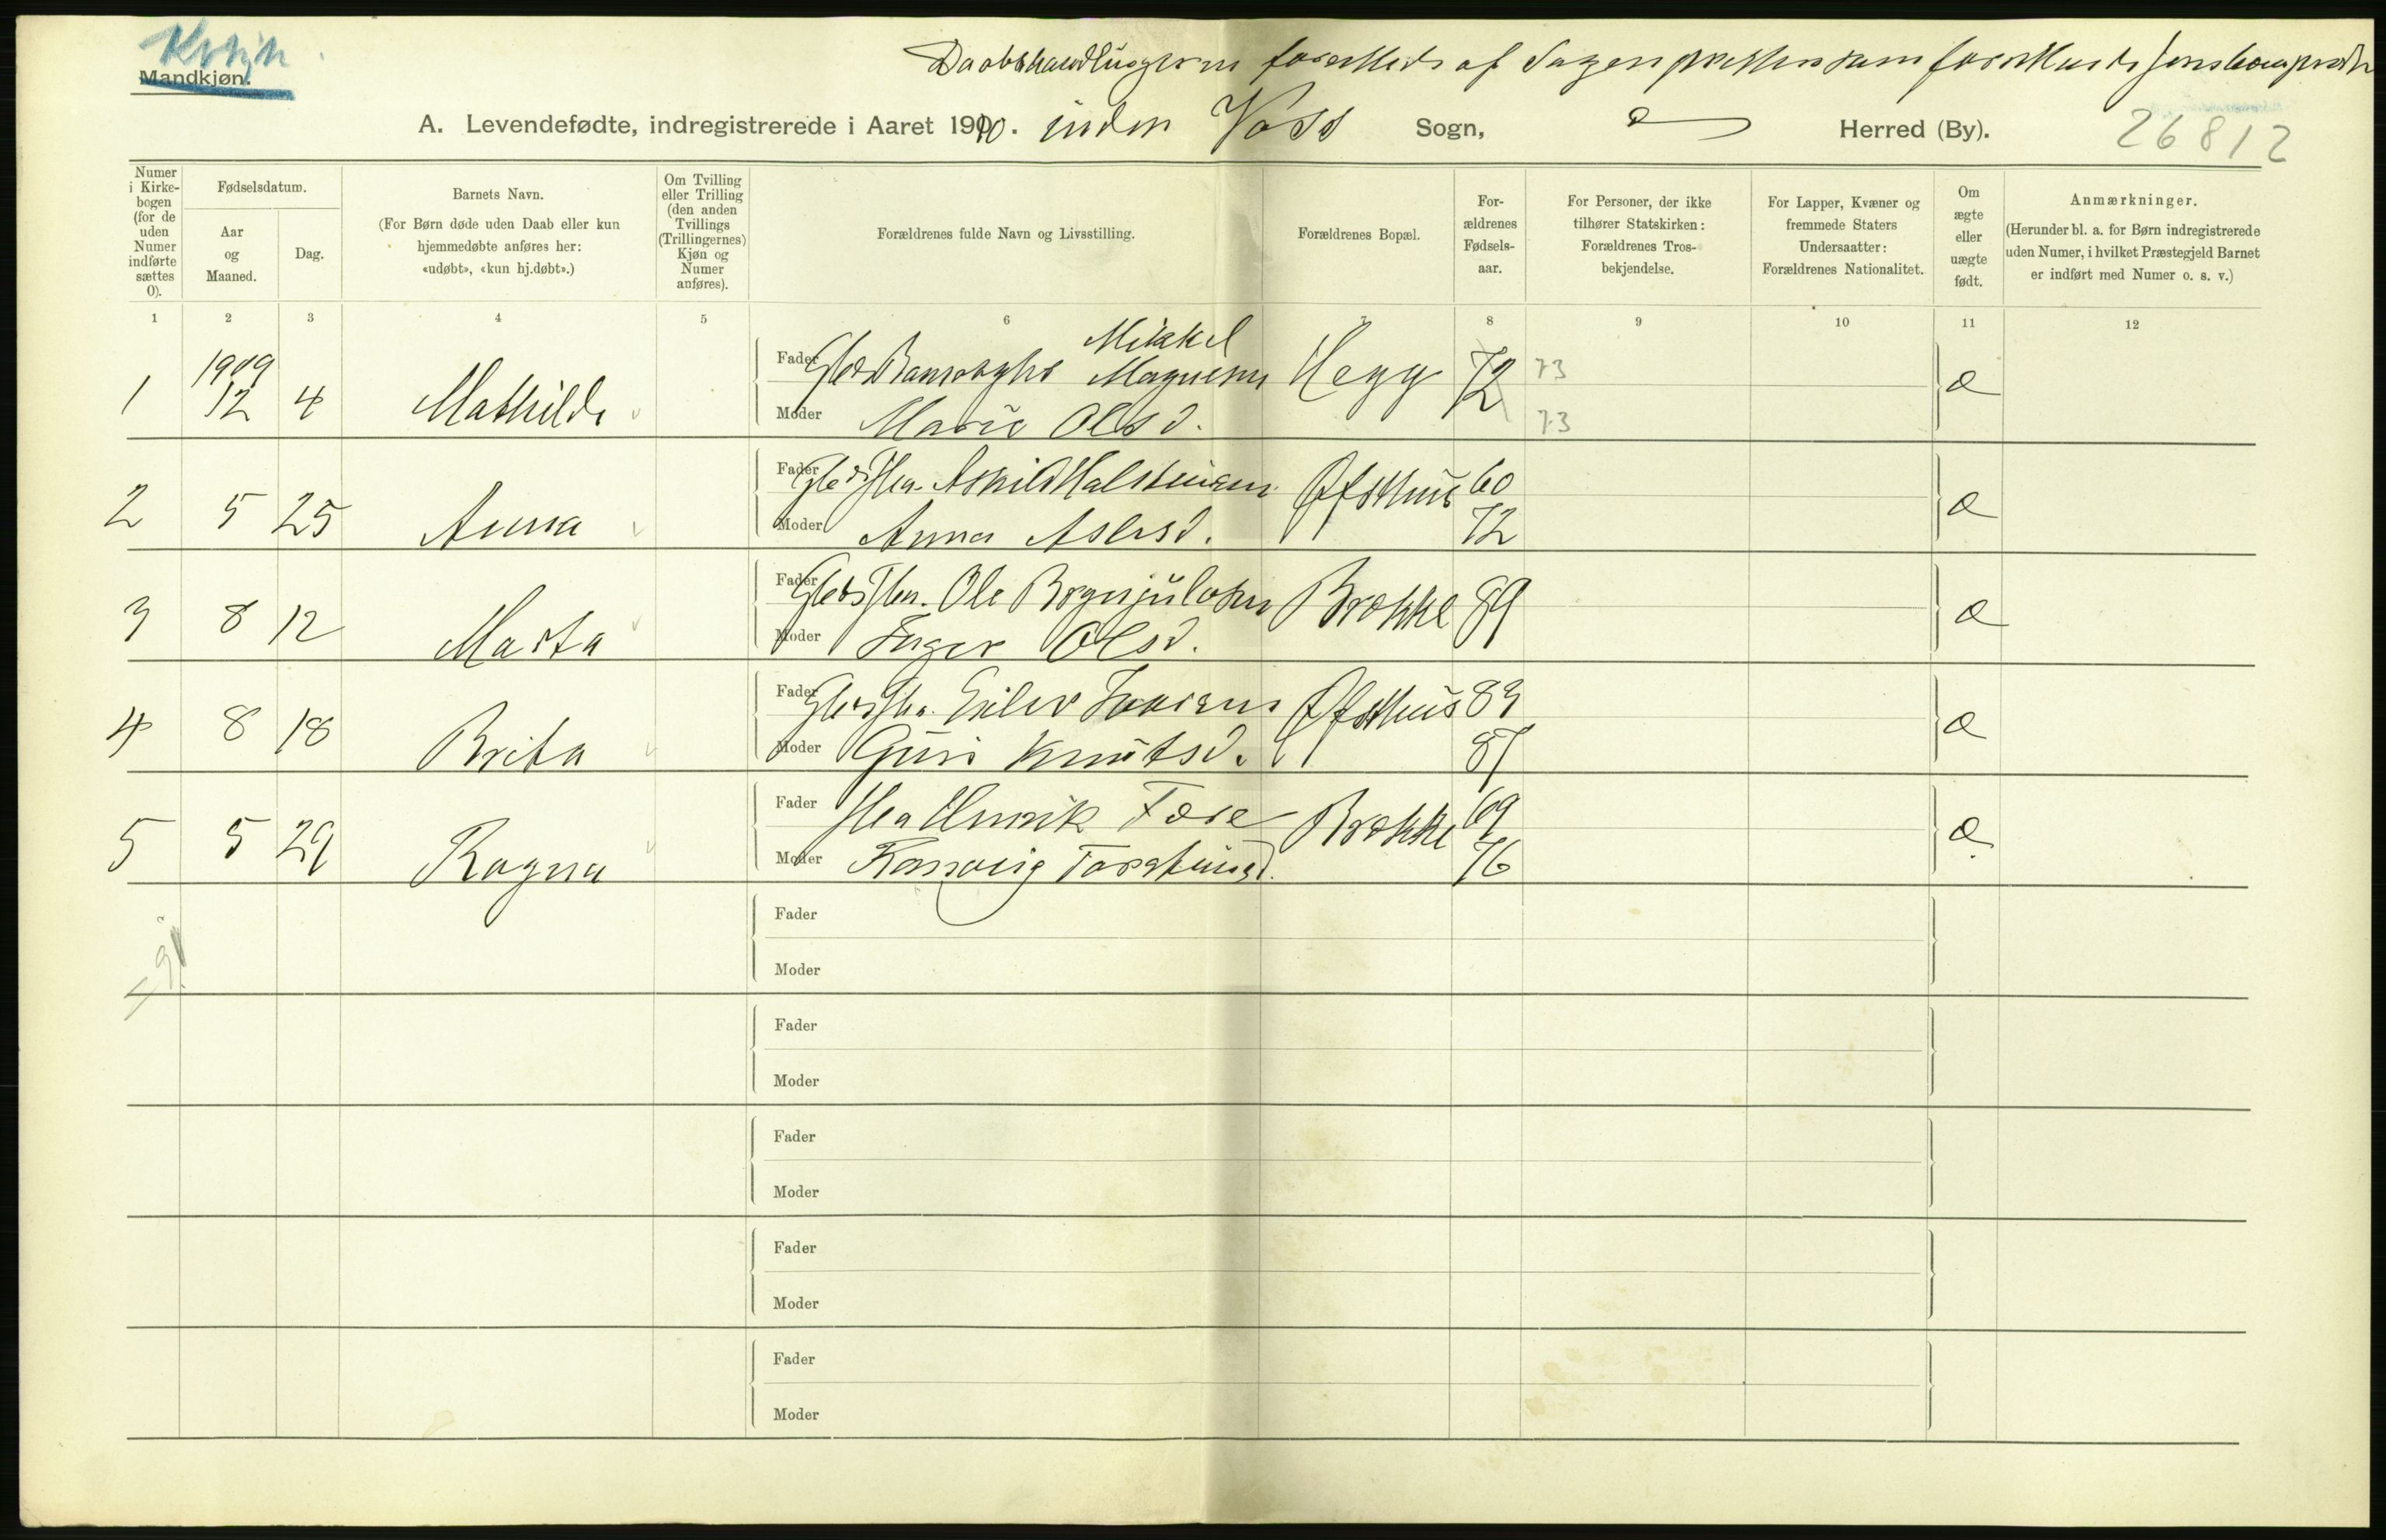 Kvkjn
Mandkjøn.
Daabshandlingerne af som
A. Levendefødte, indregistrerede i Aaret 1910. inden Voss Sogn, Herred (By).
26812
Numer i Kirkebogen (for de uden Numer indførte sættes 0).
Fødselsdatum.
Aar og Maaned.
Dag.
Barnets Navn.
(For Børn døde uden Daab eller kun
hjemmedøbte anføres her:
«udøbt», «kun hj.døbt».)
Om Tvilling
eller Trilling
(den anden
Tvillings
(Trillingernes)
Kjøn og
Numer
anføres).
Forældrenes fulde Navn og Livsstilling.
Forældrenes Bopæl.
For-
ældrenes
Fødsels-
aar.
For Personer, der ikke
tilhører Statskirken:
Forældrenes Tros-
bekjendelse.
For Lapper, Kvæner og
fremmede Staters
Undersaatter:
Forældrenes Nationalitet.
Om
ægte
eller
uægte
født.
Anmærkninger.
(Herunder bl. a. for Børn indregistrerede
uden Numer, i hvilket Præstegjeld Barnet
er indført med Numer o. s. v.)
1 2 3 4 5 6 7 8 9 10 11 12
1 1909 12 4 Mathilde
Fader Mikkel Magnesen Hegg 72 73 æ
Moder Marie Olsd. 73
2 5 25 Anna
Fader Askild Halsteinsen Øfsthus 60 æ
Moder Anna Aslesd. 72
3 8 12 Marta
Fader Ole Brynjulvsen Brække 89 æ
Moder Inger Olsd.
4 8 18 Brita
Fader Eilev Ivarsen Øfsthus 83 æ
Moder Guri Knutsd. 87
5 5 29 Ragna
Fader Henrik Fære Brække 69 æ
Moder Torsteinsd. 76
Fader
Moder
Fader
Moder
Fader
Moder
Fader
Moder
Fader
Moder